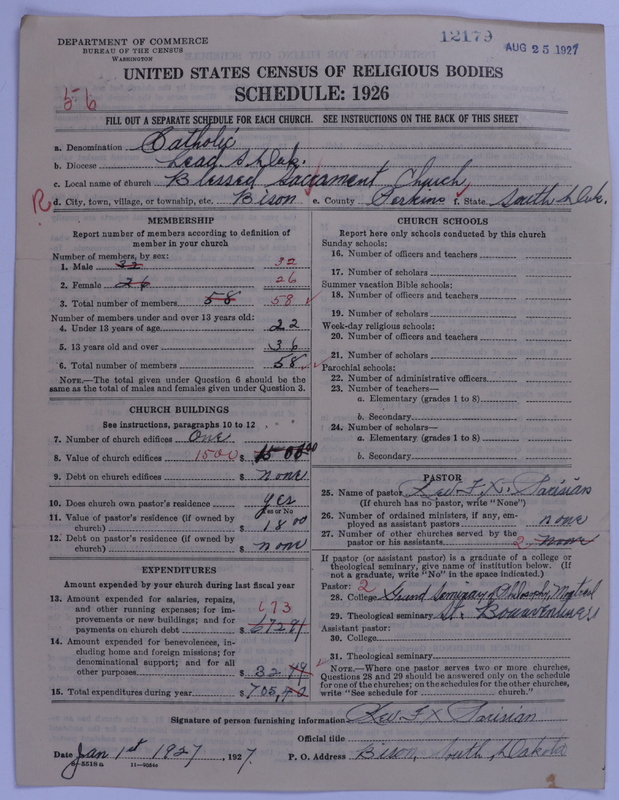 DEPARTMENT OF COMMERCE
BUREAU OF THE CENSUS
WASHINGTON
12179
AUG 25 1927
UNITED STATES CENSUS OF RELIGIOUS BODIES
SCHEDULE: 1926
56
FILL OUT A SEPARATE SCHEDULE FOR EACH CHURCH. SEE INSTRUCTIONS ON THE BACK OF THIS SHEET
a. Denomination Catholic
b. Diocese Lead S. Dak.
c. Local name of church Blessed Sacrament Church
R d. City, town, village, or township, etc. Bison e. County Perkins f. State South Dak.
MEMBERSHIP
Report number of members according to definition of
member in your church
Number of members, by sex:
1. Male 32 32
2. Female 26 26
3. Total number of members 58 58
Number of members under and over 13 years old:
4. Under 13 years of age 22
5. 13 years old and over 36
6. Total number of members 58
NOTE.—The total given under Question 6 should be the
same as the total of males and females given under Question 3.
CHURCH BUILDINGS
See instructions, paragraphs 10 to 12
7. Number of church edifices One
8. Value of church edifices 1500 $ 1500 00
9. Debt on church edifices $ none
10. Does church own pastor's residence yes
Yes or No
11. Value of pastor's residence (if owned by
church) $ 1800
12. Debt on pastor's residence (if owned by
church) $ none
EXPENDITURES
Amount expended by your church during last fiscal year
13. Amount expended for salaries, repairs,
and other running expenses; for im-
provements or new buildings; and for
payments on church debt $ 673
14. Amount expended for benevolences, in-
cluding home and foreign missions; for
denominational support; and for all
other purposes $ 32
15. Total expenditures during year $ 705
CHURCH SCHOOLS
Report here only schools conducted by this church
Sunday schools:
16. Number of officers and teachers
17. Number of scholars
Summer vacation Bible schools:
18. Number of officers and teachers
19. Number of scholars
Week-day religious schools:
20. Number of officers and teachers
21. Number of scholars
Parochial schools:
22. Number of administrative officers
23. Number of teachers—
a. Elementary (grades 1 to 8)
b. Secondary
24. Number of scholars—
a. Elementary (grades 1 to 8)
b. Secondary
PASTOR
25. Name of pastor Rev. F. X.
(If church has no pastor, write "None")
26. Number of ordained ministers, if any, em-
ployed as assistant pastors none
27. Number of other churches served by the
pastor or his assistants 2 none
If pastor (or assistant pastor) is a graduate of a college or
theological seminary, give name of institution below. (If
not a graduate, write "No" in the space indicated.)
Pastor: 2
28. College Grand Seminary of Philosophy, Montreal
29. Theological seminary St. Bonaventure
Assistant pastor:
30. College
31. Theological seminary
NOTE.—Where one pastor serves two or more churches,
Questions 28 and 29 should be answered only on the schedule
for one of the churches; on the schedules for the other churches,
write "See schedule for church."
Signature of person furnishing information Rev F X
Official title
Date Jan 1st 1927, 1927. P. O. Address Bison, South Dakota